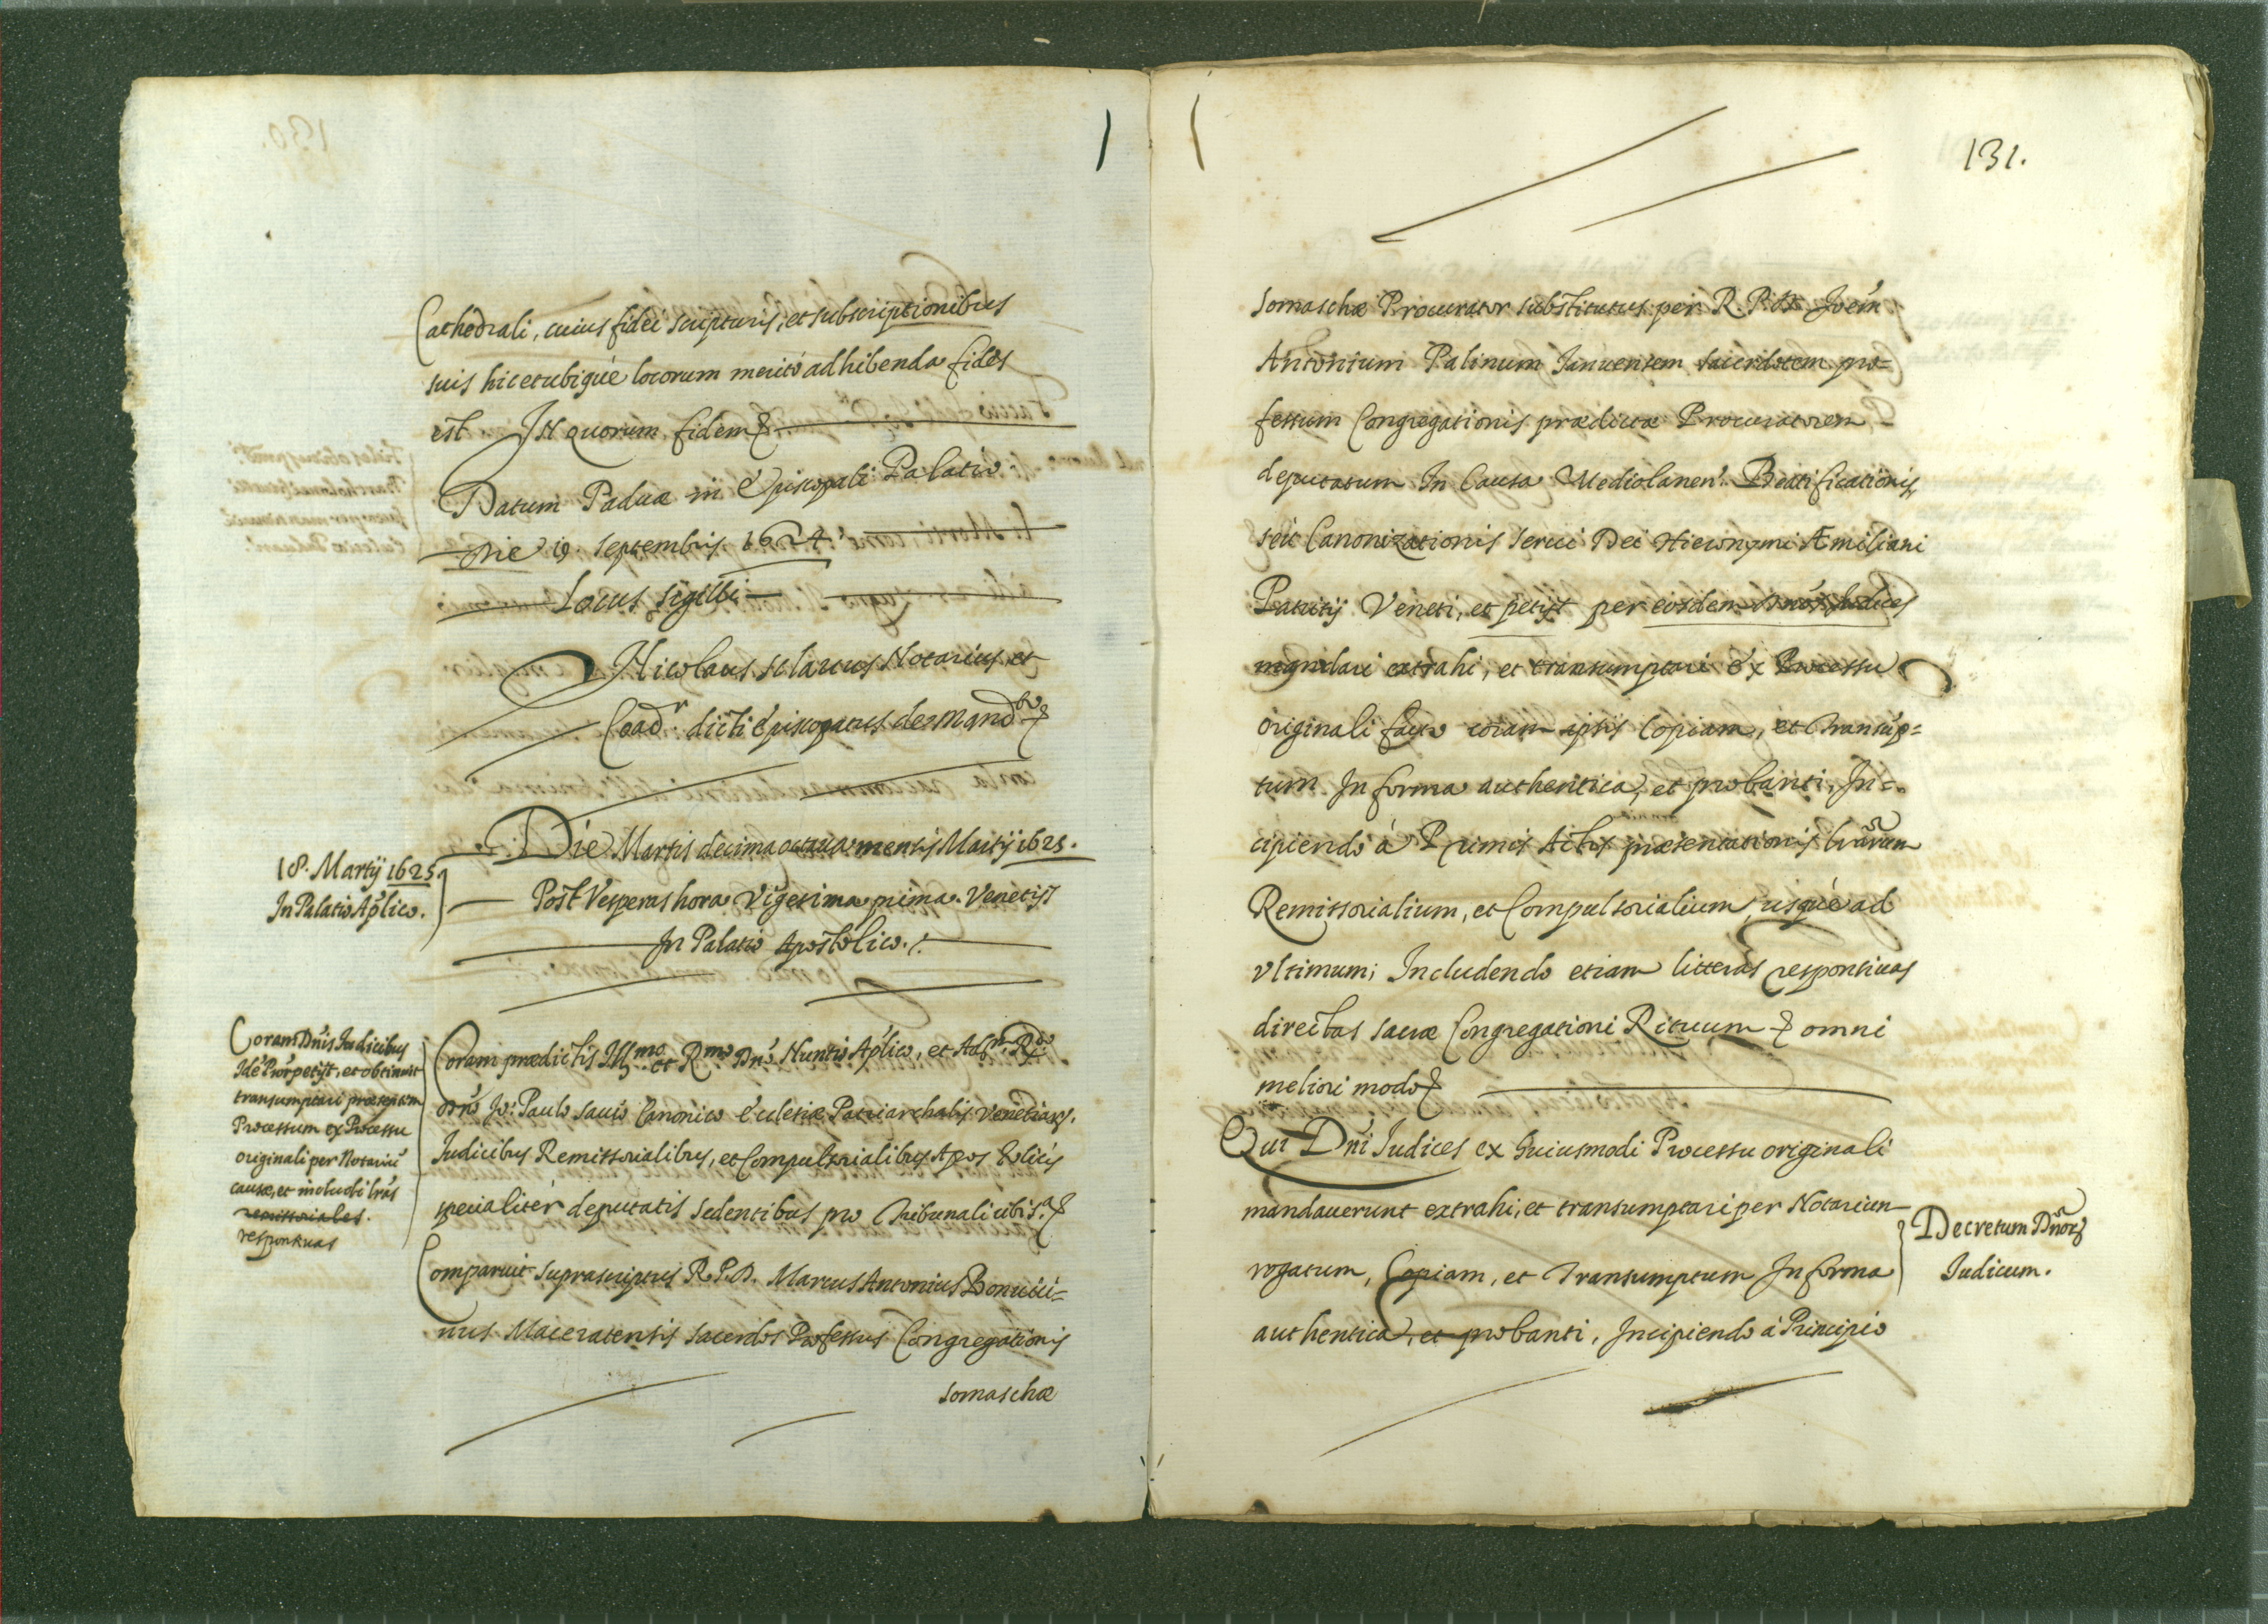 Cathedrali, cuius fidei scripturis, et subscriptionibus
suis hic et ubiqué locorum meritó adhibenda fides
est In quorum fidem &
Datum Paduæ in Episcopali Palatio
Die 19. Septembris 1624.
Locus sigilli
Nicolaus Notarius, et
Coad.r dicti Episcopatus de Mand.to &
18. Martij 1625.
In Palatio Aplico.
Die Martis decima octava mensis Martij 1625.
Post Vesperas hora Vigesima prima. Venetijs
In Palatio Apostolico.
Coram Dnis Iudicibus
Idé Procr petijt, et obtinuit
transumptari præsentem
Processum ex Processu
originali per Notariú
causæ, et includi lrás
remissoriales.
responsivas
Coram prædictis Illmo. et Rmo Dnó. Nuntio Aplico, et Adm. Rdo
Dnó Io: Paulo Savio Canonico Ecclesiæ Patriarchalis Venetiarz.
Iudicibus Remissorialibus, et Compulsorialibus Apostolicis
specialitér deputatis sedentibus pro Tribunali ubi s.a &
Comparuit suprascriptus R. P. D. Marcus Antonius Bonucci=
nus Maceratensis sacerdos Professus Congregationis
somaschæ
131.
somaschæ Procurator substitutus per R. P. D. Joém
Antonium Palinum Januensem sacerdotem pro=
fessum Congregationis prædictæ Procuratorem
deputatum In Causa Mediolanen. Beatificationis,
seú Canonizationis servi Dei Hieronymi Æmiliani
Patritij Veneti, et petijt per eosdem Dnós Iudices
mandari extrahi, et transumptari ex Processu
originali facto coram ipsis Copiam, et Transúp=
tum In forma authentica, et probanti, In=
cipiendo á Primis Actis præsentationis lrárum
Remissorialium, et Compulsorialium, usqué ad
Vltimum; Includendo etiam litteras responsivas
directas sacræ Congregationi Rituum & omni
meliori modo &
Qui Dni Iudices ex huiusmodi Processu originali
mandaverunt extrahi, et transumptari per Notarium
rogatum, Copiam, et Transumptum In forma
authentica, et probanti, Incipiendo á Principio
Decretum Dnorz
Iudicum.